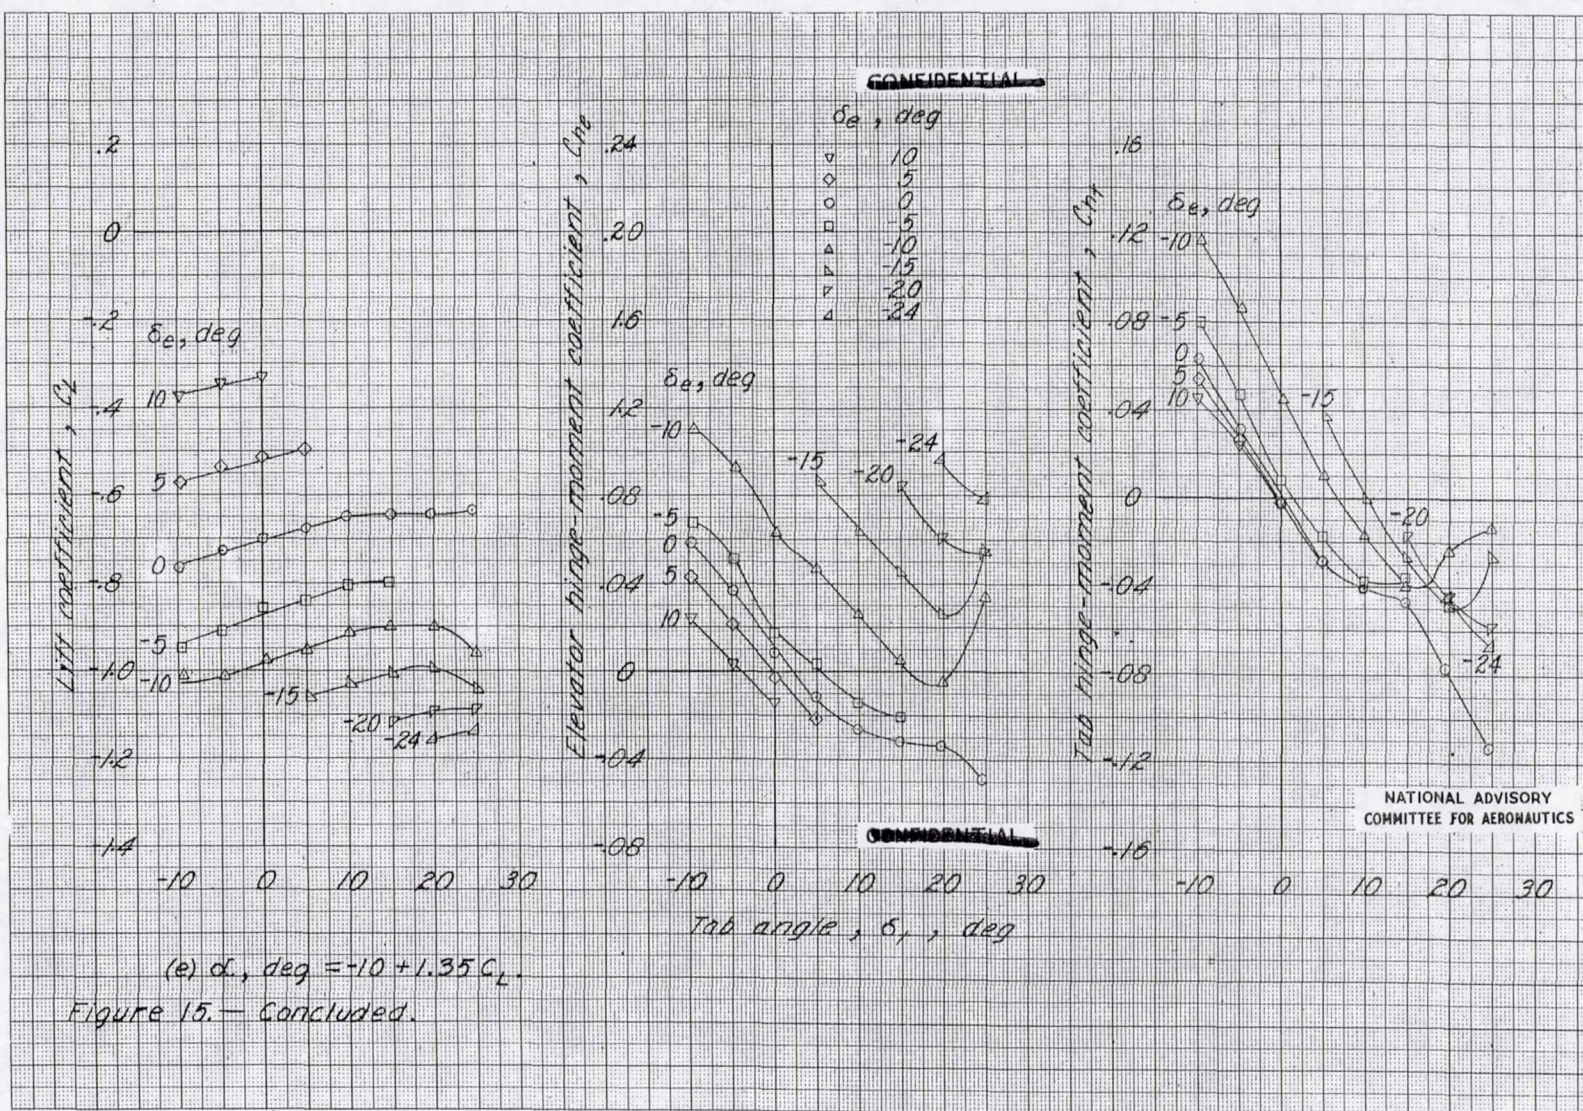 CONFIDENTIAL
.2
0
-.2
-.4
-.6
-.8
-1.0
-1.2
-1.4
Lift coefficient, C_L
δe, deg
10
5
0
-5
-10
-15
-20
-24
-10 0 10 20 30
Elevator hinge-moment coefficient, Che
.24
.20
.16
.12
.08
.04
0
-.04
-.08
δe, deg
10
5
0
-5
-10
-15
-20
-24
δe, deg
-10
-5
0
5
10
-15
-20
-24
-10 0 10 20 30
Tab angle, δt, deg
Tab hinge-moment coefficient, Cht
.16
.12
.08
.04
0
-.04
-.08
-.12
-.16
δe, deg
-10
-5
0
5
10
-15
-20
-24
-10 0 10 20 30
NATIONAL ADVISORY
COMMITTEE FOR AERONAUTICS
CONFIDENTIAL
(e) α, deg = -10 + 1.35 C_L.
Figure 15. — Concluded.